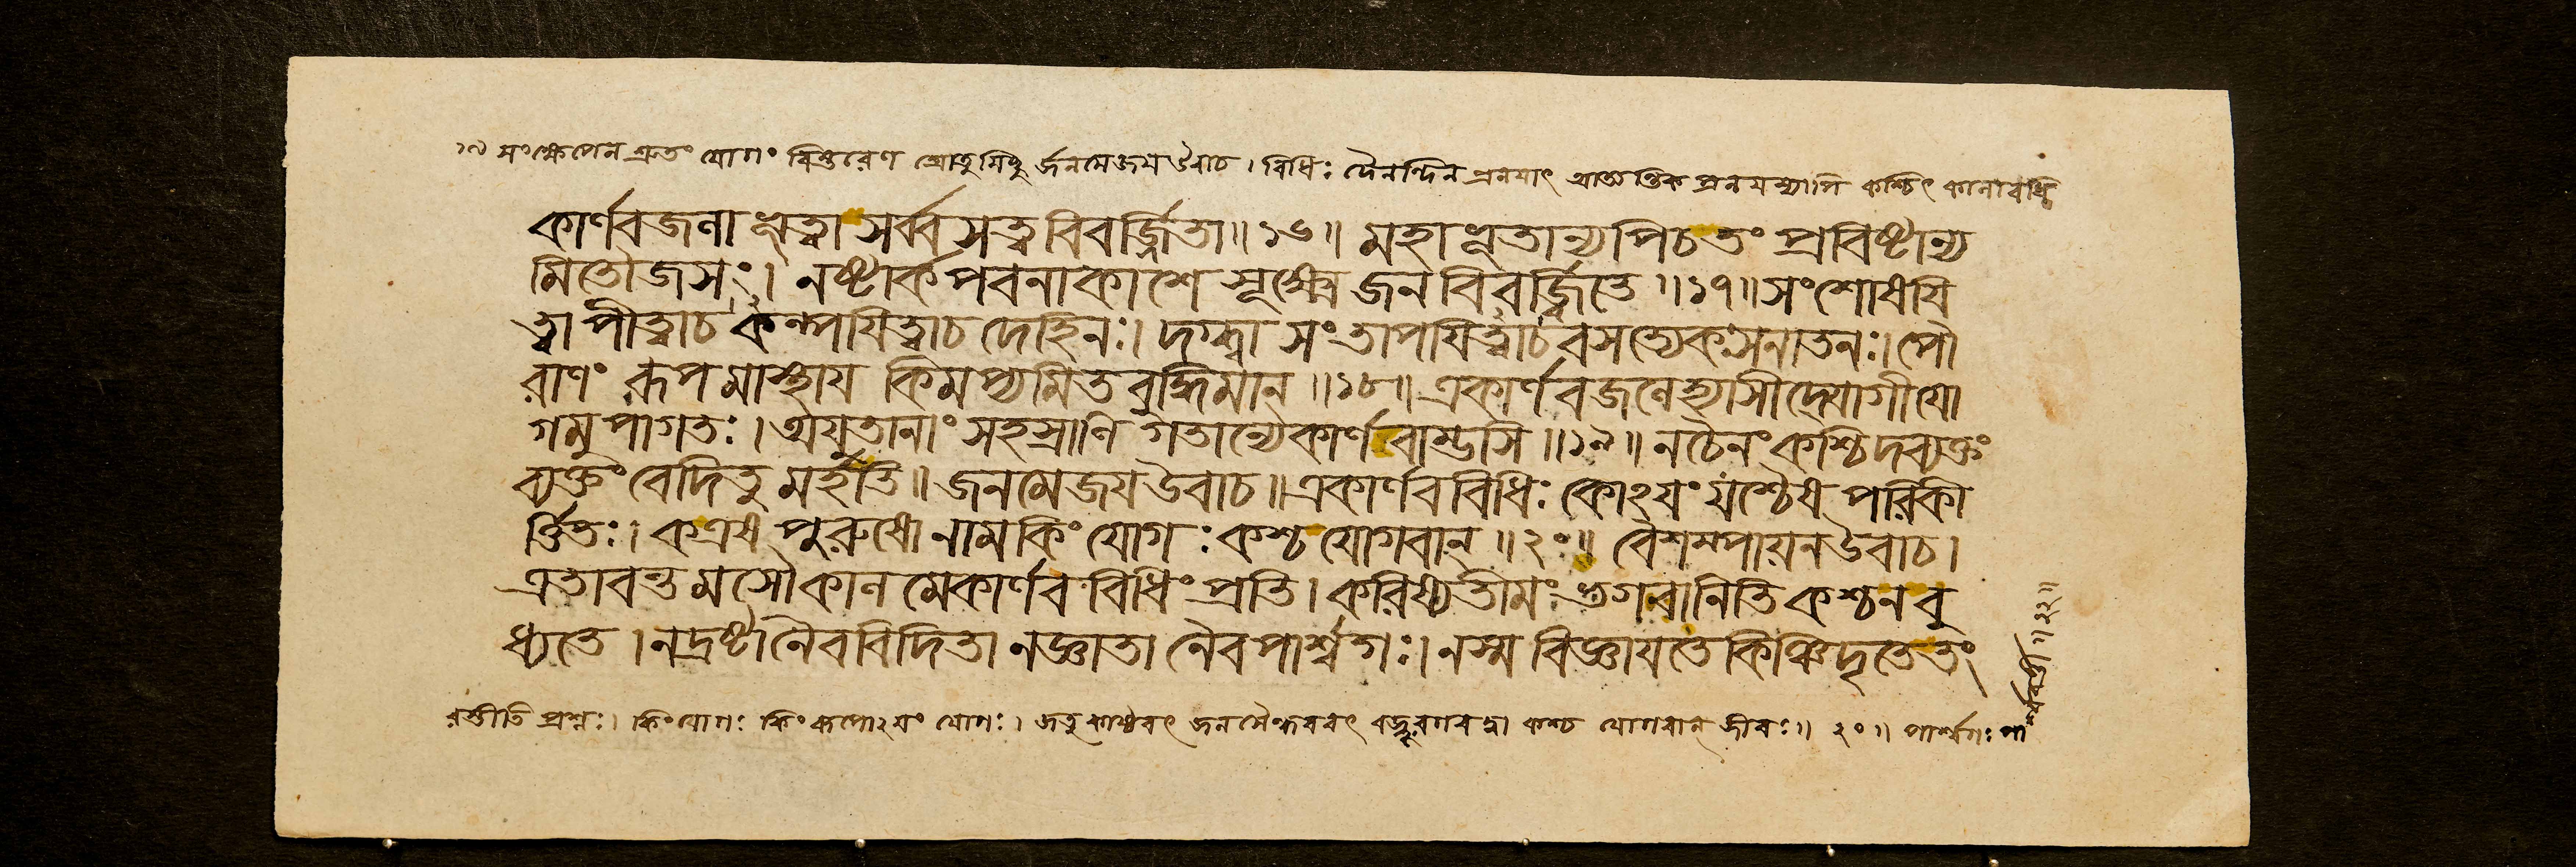 ১৯ সংক্ষেপেন শ্রুতং যোগং বিস্তরেণ শ্রোতুমিচ্ছু র্জনমেজয উবাচ । বিধিঃ দৈনন্দিন প্রলযাৎ আত্যন্তিক প্রলযস্যাপি কশ্চিৎ কালাবধি
কার্ণবজলা ভূত্বা সর্ব্বসত্ত্ববিবর্জ্জিতা॥১৬॥ মহাভূতান্যপিচতং প্রবিষ্টান্য
মিতৌজসঃ। নষ্টার্কপবনাকাশে সূক্ষ্মে জনবিবর্জ্জিতে ॥১৭॥সংশোষযি
ত্বা পীত্বাচ কল্পযিত্বাচ দেহিনঃ। দগ্ধ্বা সংতাপযিত্বাচবসত্যেকঃসনাতনঃ।পৌ
রাণং রূপমাস্থায কিমপ্যমিতবুদ্ধিমান্ ॥১৮॥ একার্ণবজলেহ্যাসীদ্যোগীযো
গমুপাগতঃ।অযুতানাং সহস্রাণি গতান্যেকার্ণবাম্ভসি ॥১৯॥ নচৈনং কশ্চিদব্যক্তং
ব্যক্তং বেদিতুমর্হতি॥ জনমেজযউবাচ॥একার্ণববিধিঃ কোঽযং যশ্চৈষ পরিকী
র্ত্তিতঃ। কএষ পুরুষো নাম কিং যোগঃ কশ্চ যোগবান্ ॥২০॥ বৈশম্পায়নউবাচ।
এতাবন্তমসৌকালমেকার্ণববিধিং প্রতি। করিষ্যতীমং ভগবানিতিকশ্চনবু
ধ্যতে ।নদ্রষ্টানৈববিদিতা নজ্ঞাতা নৈবপার্শ্বগঃ। নস্মবিজ্ঞাযতেকিঞ্চিদৃতেতং
রস্তীতি প্রশ্নঃ। কিংযোগঃ কিংরূপোঽযং যোগঃ। জতুকাষ্ঠবৎ জলসৈন্ধববৎ কশ্চ যোগবান্ জীবঃ॥ ২০॥ পার্শ্বগঃ পা